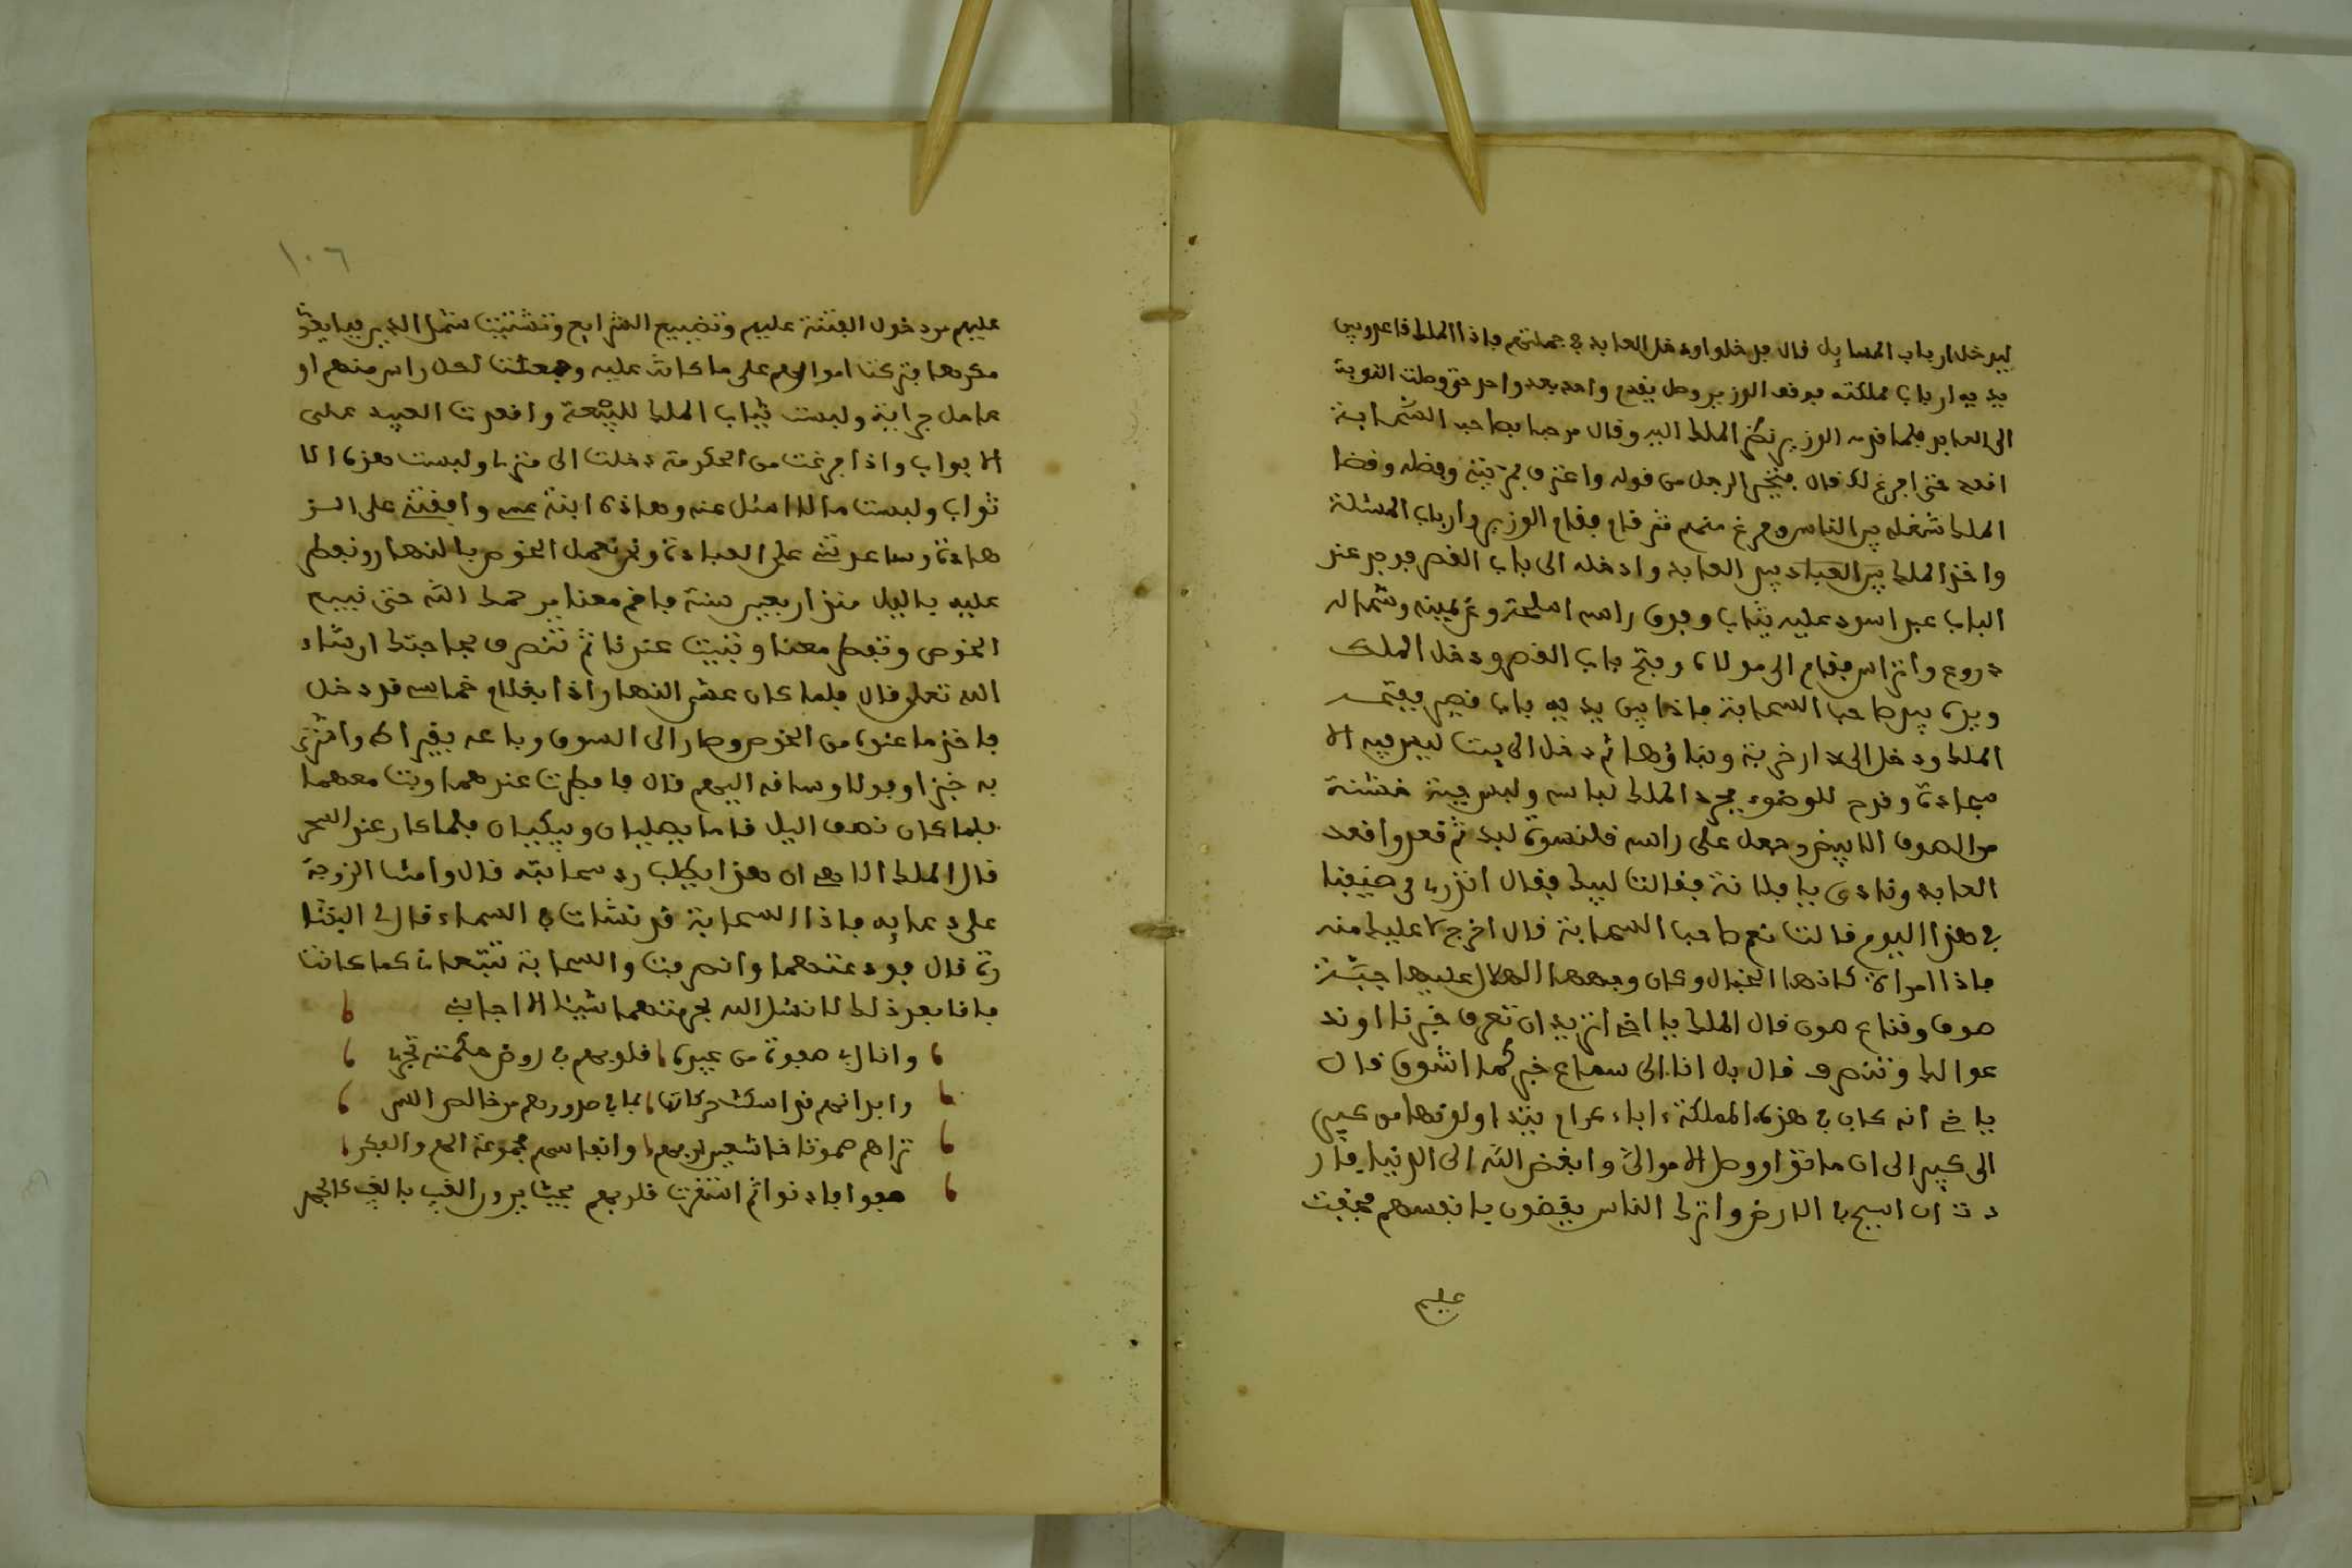 ليدخل ارباب المسايل قال فدخلوا ودخل العابد في جملتهم فاذا الملك قاعد وبين
يديه ارباب مملكته فوقف الوزير وجعل يقدم واحد بعد واحد حتى وصلت النوبة
الى العابد فلما قدمه الوزير نظر الملك اليه وقال مرحبا بصاحب السحابة
اقعد حتى افرغ لك قال فتحير الرجل من قوله واعترف بمرتبته وفضله وقضا
الملك شغله بين الناس وفرغ منهم ثم قام فقام الوزير وارباب المسئلة
واخذ الملك بيد العابد وادخله الى باب القصر فوجد عند
الباب عبد اسود عليه ثياب وفوق راسه اسلحة وعن يمينه وشماله
دروع وأتراس فقام الى مولاه وفتح باب القصر ودخل الملك
ويده بيد صاحب السحابة فاذا بين يديه باب قصير ففتحه
الملك ودخل الى دار خربة وبناؤها ثم دخل الى بيت ليس فيه الا
سجادة وقدح للوضوء فجرد الملك لباسه ولبس جبة خشنة
من الصوف الابيض وجعل على راسه قلنسوة لبد ثم قعد واقعد
العابد ونادى يا فلانة فقالت لبيك فقال اتدري من ضيفنا
في هذا اليوم قالت نعم صاحب السحابة قال اخرجي لا عليك منه
فاذا امراة كانها الخيال وكان وجهها الهلال عليها جبة
صوف وقناع صوف قال الملك يا اخي اتريد ان تعرف خبرنا او ند
عوا لك وتنصرف قال بل انا الى سماع خبركما اشوق قال
يا خي انه كان في هذه المملكة ءاباء كرام يتداولونها من كبير
الى كبير الى ان ماتوا ووصل الامر الى وابغض الله الى الدنيا فار
دت ان اسيح في الارض واترك الناس يقضون يا نفسهم فخفت
عليهم
١٠٦
عليهم من دخول الفتنة عليهم وتضييع الشرايع وتشتيت شمل الدين فبايعو
مكرها فتركت اموالهم على ما كانت عليه وجعلت لكل راس منهم او
عامل جراية ولبست ثياب الملك للهيبة واقعدت العبيد على
الابواب واذا فرغت من الحكومة دخلت الى منزلي ولبست هذه الا
ثواب ولبست ما لا اسئل عنه وهاذه ابنة عمي وافقتني على الز
هادة وساعدتني على العبادة ونحن نعمل الخوص بالنهار ونفطر
عليه باليل منذ اربعين سنة فاقم معنا يرحمك الله حتى نبيع
الخوص وتفطر معنا وتبيت عندنا ثم تنصرف بحاجتك ان شاء
الله تعلى قال فلما كان عشي النهار اذا بغلام خماسي قد دخل
فاخذ ما عنده من الخوص وصار الى السوق وباعه بقيراط واشترى
به خبزا وفولا وساقه اليهم قال فافطرت عندهما وبت معهما
فلما كان نصف اليل قاما يصليان ويبكيان فلما كان عند السحر
قال الملك اللهم ان هذا يطلب رد سحابته قال وامنت الزوجة
على دعايه فاذا السحابة قد نشات في السماء قال لي البشا
رة قال فودعتهما وانصرفت والسحابة تتبعني كما كانت
فانا بعد ذلك لا نسئل الله بحرمتهما شيئا الا اجابني
وان لربي صفوة من عبيده قلوبهم في روض حكمته تجري
وابدانهم قد اسكنت حركاتها بما في صدورهم من خالص السر
تراهم صموتا خاشعين لربهم وانفاسهم مجموعة الهم والفكر
صفوا فاد نوا ثم استقرت قلوبهم بحيث يرون الغيب بالغيب كالجهر